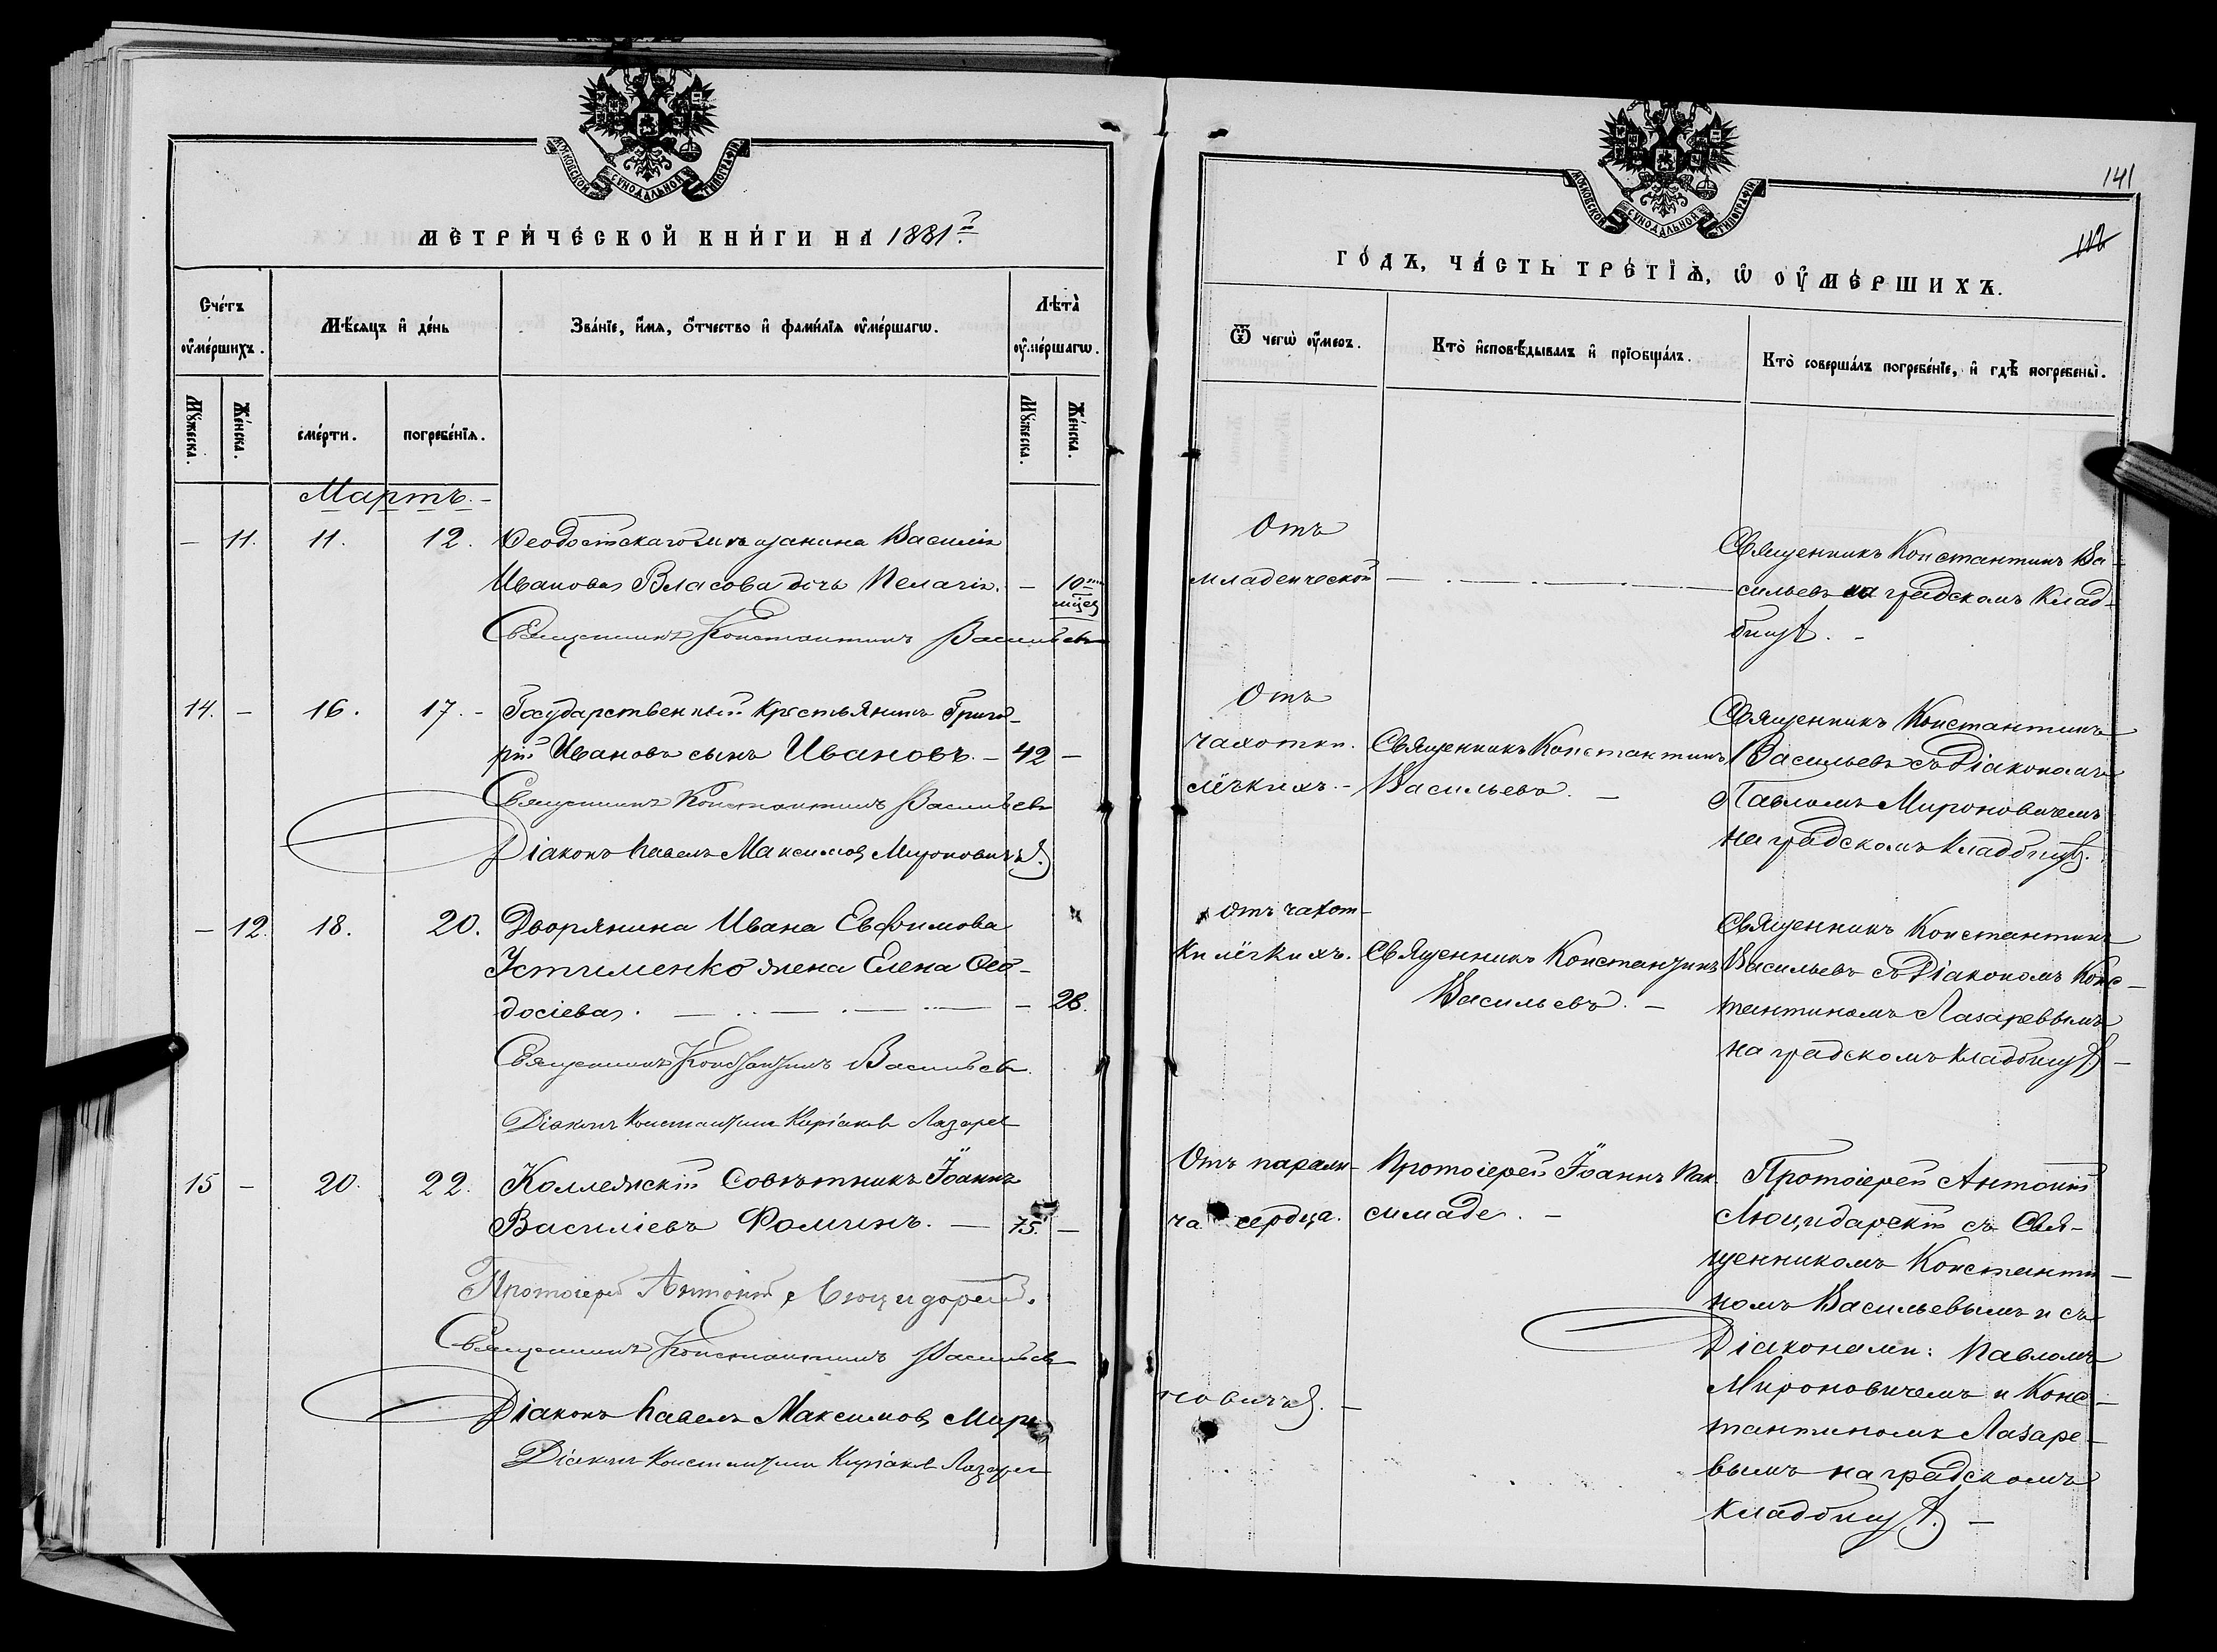 МОСКОВСКОЙ СѴНОДАЛЬНОЙ ТИПОГРАФІИ
МЕТРИ́ЧЕСКОЙ КНИ́ГИ НА 1881й
Сче́тъ ᲂу҆ме́ршихъ.
Мѣ́сяцъ и҆ де́нь
Зва́нїе, и҆́мя, ѻ҆́тчество и҆ фами́лїя ᲂу҆ме́ршагѡ.
Лѣта̀ ᲂу҆ме́ршагѡ.
Му́жеска.
Же́нска.
сме́рти.
погребе́нїя.
Му́жеска.
Же́нска.
Мартъ. -
- 11. 11. 12. Ѳеодосійскаго мѣщанина Василія
Иванова Власова дочь Пелагія. - 10ти мѣсец
Священникъ Константинъ Васильевъ
14. - 16. 17. - Государственный крестьянинъ Григо-
рій Ивановъ сынъ Ивановъ. - 42 -
Священникъ Константинъ Васильевъ
Діаконъ Павелъ Максимов Мироновичъ.
- 12. 18. 20. Дворянина Ивана Евфимова
Устименко жена Елена Ѳео-
досіева. - 28.
Священникъ Константинъ Васильев
Діаконъ Константинъ Киріаковъ Лазарев
15 - 20. 22. Коллежскій Совѣтникъ Іоаннъ
Василіевъ Фоминъ. - 75. -
Протоіерей Антоній Люцидарскій.
Священникъ Константинъ Васильевъ
Діаконъ Павелъ Максимов Миро
Діаконъ Константинъ Киріаковъ Лазарев
МОСКОВСКОЙ СѴНОДАЛЬНОЙ ТИПОГРАФІИ
141
ГО́ДЪ, ЧА́СТЬ ТРЕ́ТЇЯ, Ѡ ОУ҆МЕ́РШИХЪ.
Ѿ чегѡ̀ ᲂу҆́меръ.
Кто̀ и҆сповѣ́дывалъ и҆ прїобща́лъ.
Кто̀ соверша́лъ погребе́нїе, и҆ гдѣ̀ погребены̀.
Отъ
младенческой
Священникъ Константинъ Ва-
сильевъ на градскомъ Клад-
бищѣ. -
Отъ
чахотки
лёгкихъ. -
Священникъ Константинъ
Васильевъ. -
Священникъ Константинъ
Васильевъ съ Діакономъ
Павломъ Мироновичемъ
на градскомъ кладбищѣ.
отъ чахот-
ки лёгкихъ.
Священникъ Константинъ
Васильевъ. -
Священникъ Константинъ
Васильевъ съ Діакономъ Конс-
тантиномъ Лазаревымъ
на градскомъ кладбищѣ. -
Отъ парали-
ча сердца.
Протоіерей Іоаннъ Пак-
симаде. -
Протоіерей Антоній
Люцидарскій съ Свя-
щенникомъ Константи-
номъ Васильевымъ и съ
Діаконами: Павломъ
Мироновичемъ и Конс-
тантиномъ Лазаре-
вымъ на градскомъ
кладбищѣ. -
новичъ. -